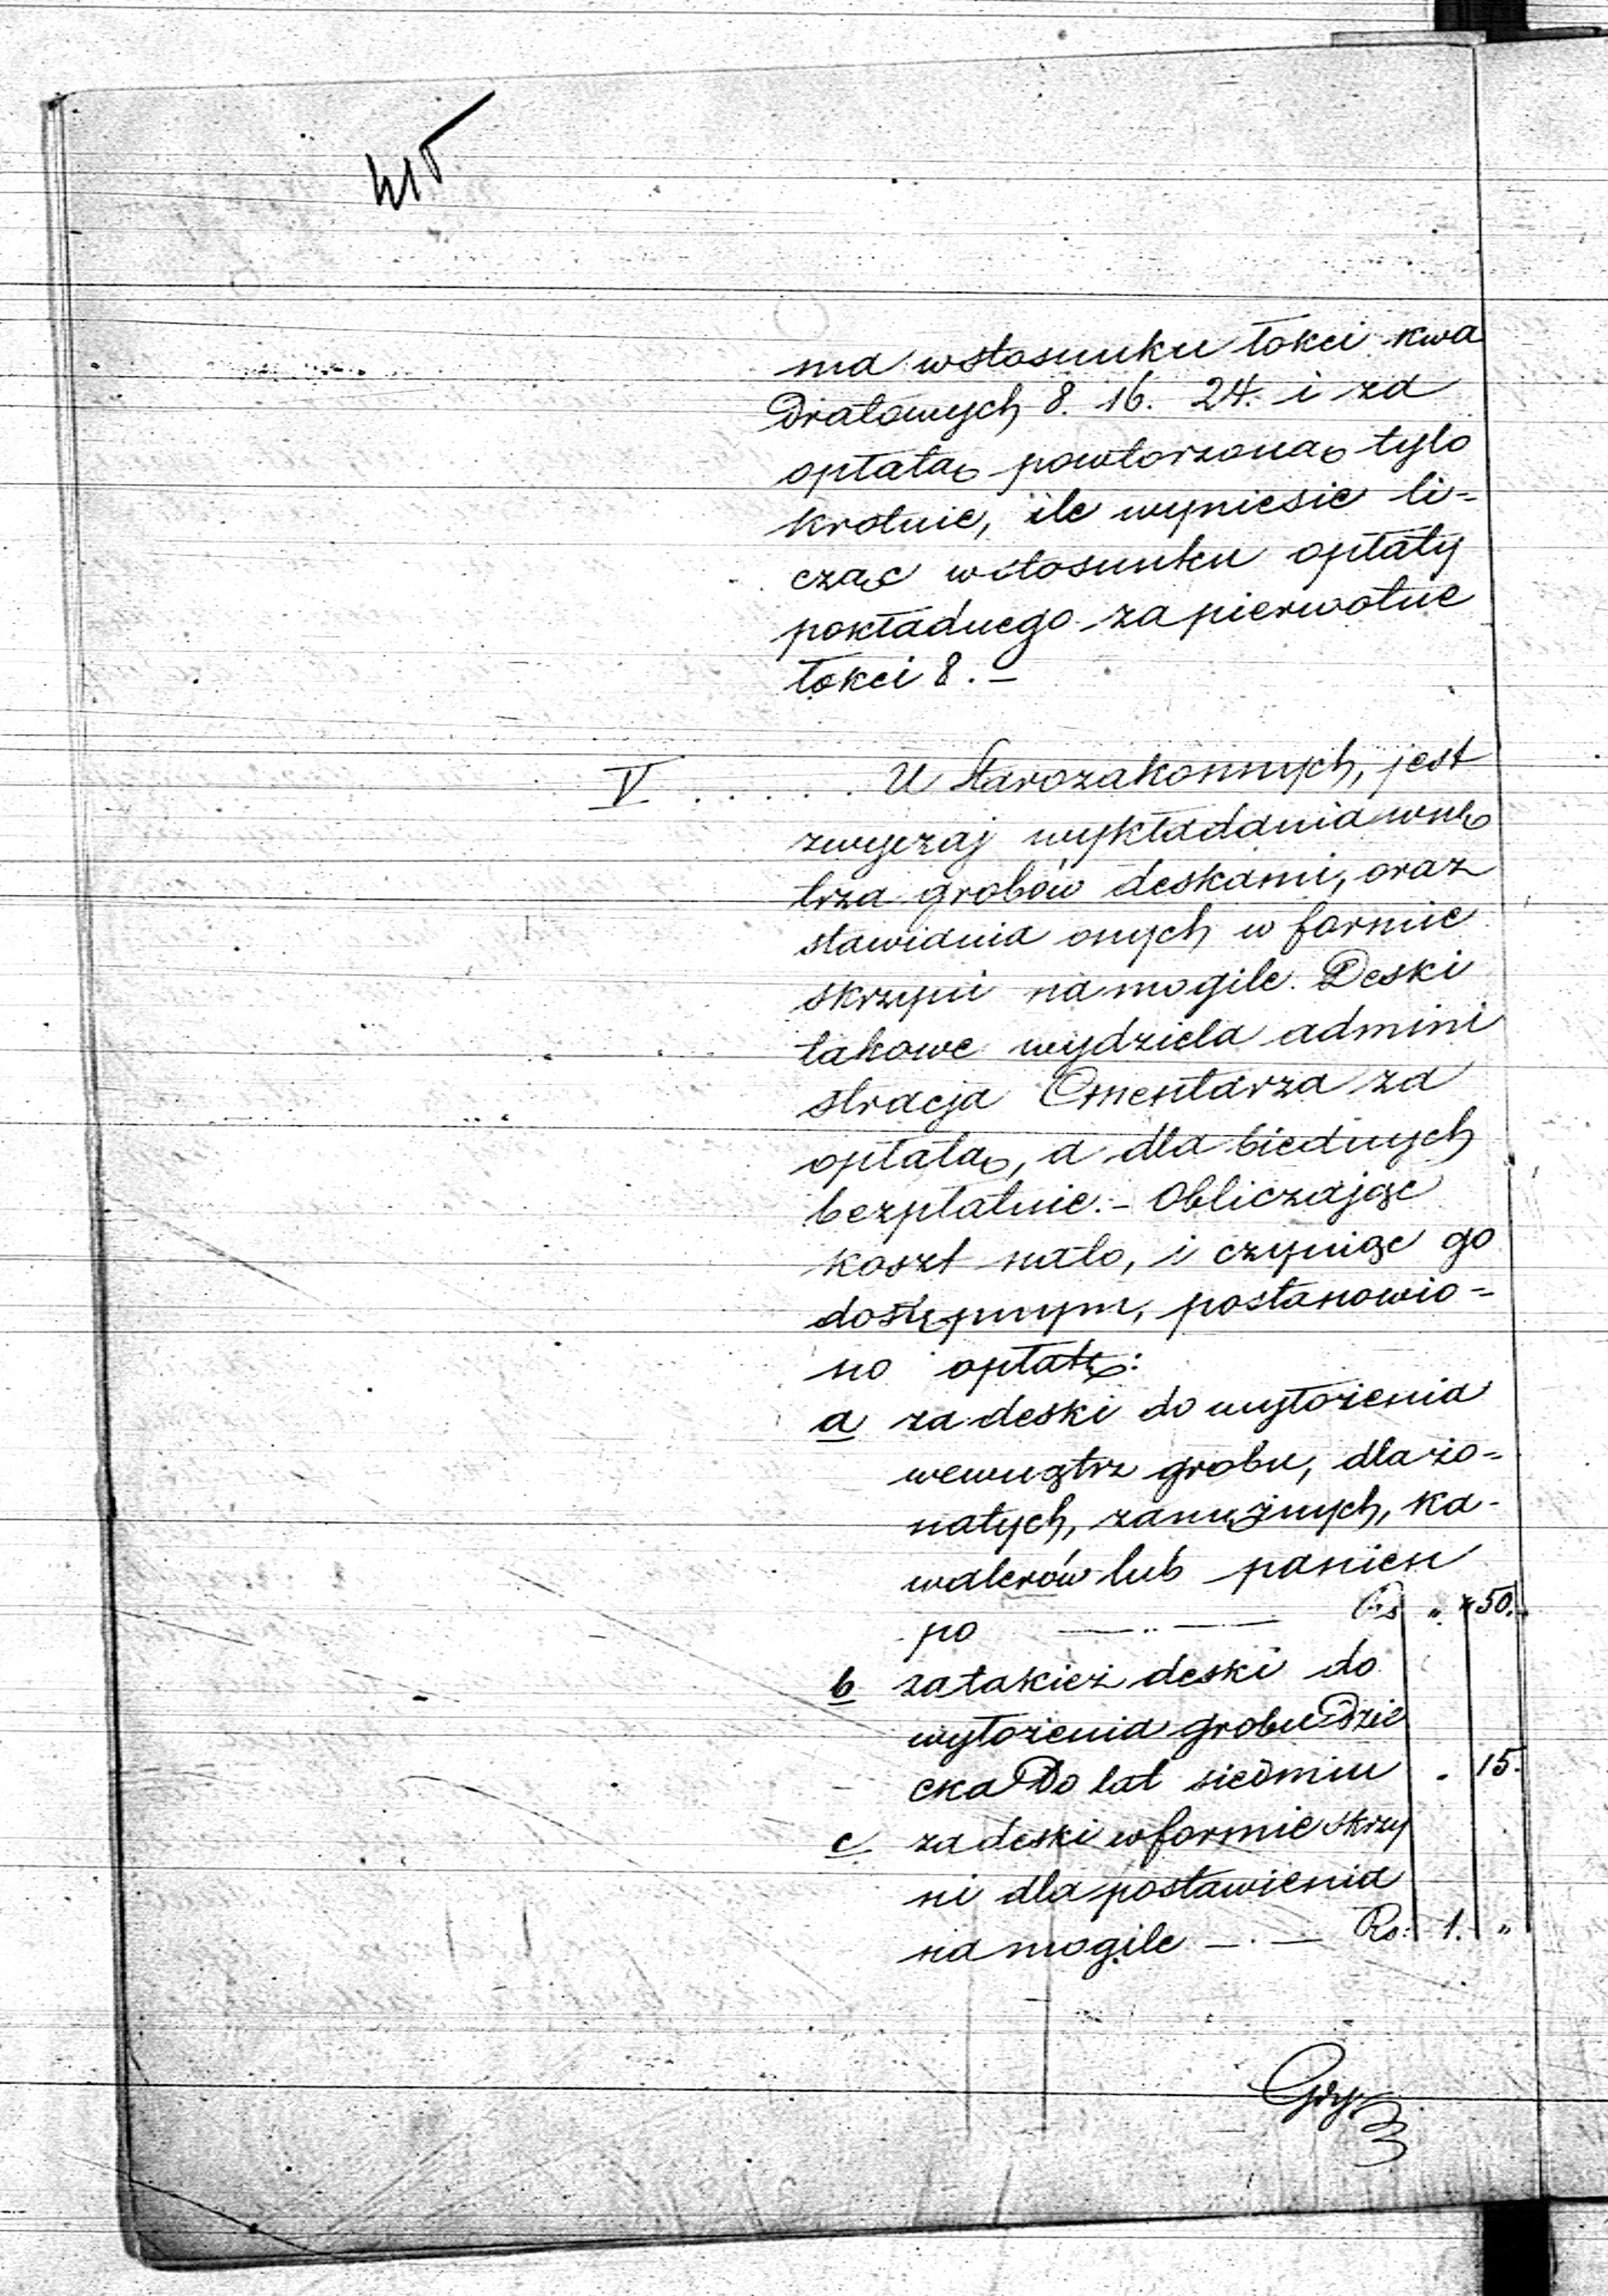 415
ma wstosunku łokci kwa
dratowych 8. 16. 24. i za
opłatą powtorzoną tylo
krotnie, ile wyniesie li=
cząc wstosunku opłaty
pokładnego za pierwotne
łokci 8.—
V . . . . . U Starozakonnych, jest
zwyczaj wykładania wnę
trza grobów deskami, oraz
stawiania onych w formie
skrzyni na mogile. Deski
takowe wydziela admini
stracja Cmentarza za
opłatą, a dla biednych
bezpłatnie.- Obliczając
koszt nato, i czyniąc go
dostępnym, postanowio=
no opłatę:
a za deski do wyłożenia
wewnątrz grobu, dla żo=
natych, zamężnych, ka-
walerów lub panien
po —..— Rs " " 50.
b zatakież deski do
wyłożenia grobu dzie
cka do lat siedmiu . 15.
c za deski w formie skrzy
ni dla postawienia
na mogile —.— Rs: 1. "
Gdy